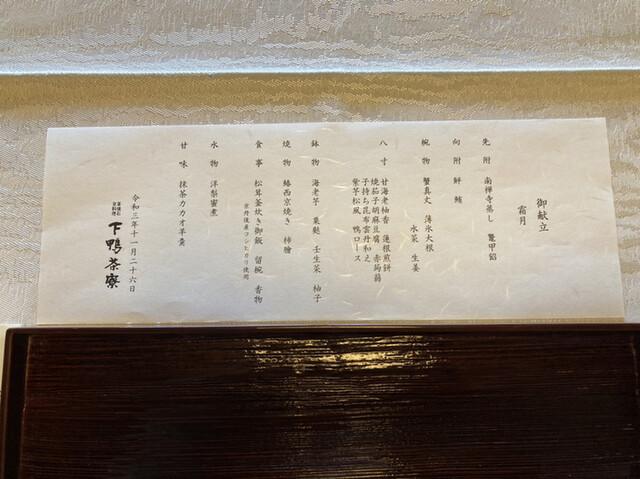 御献立
霜月
先附 南禅寺蒸し 鼈甲餡
向附 鮮鯆
椀物 蟹真丈 薄氷大根
水菜 生姜
八寸 甘海老柚香 蓮根煎餅
焼茄子胡麻豆腐 赤蒟蒻
子持ち昆布雲丹和え
紫芋松風 鴨ロース
鉢物 海老芋 粟麩 壬生菜 柚子
焼物 鰆西京焼き 柿膾
食事 松茸釜炊き御飯 留椀 香物
京丹後産コシヒカリ使用
水物 洋梨蜜煮
甘味 抹茶カカオ羊羹
令和三年十一月二十六日
下鴨茶寮